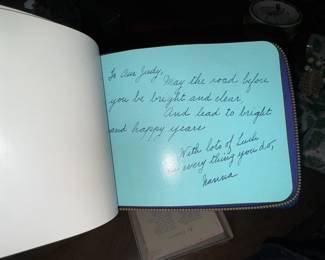 To Our Judy,
May the road before
you be bright and clear,
And lead to bright
and happy years
With lots of Luck
in every thing you do,
Nanna